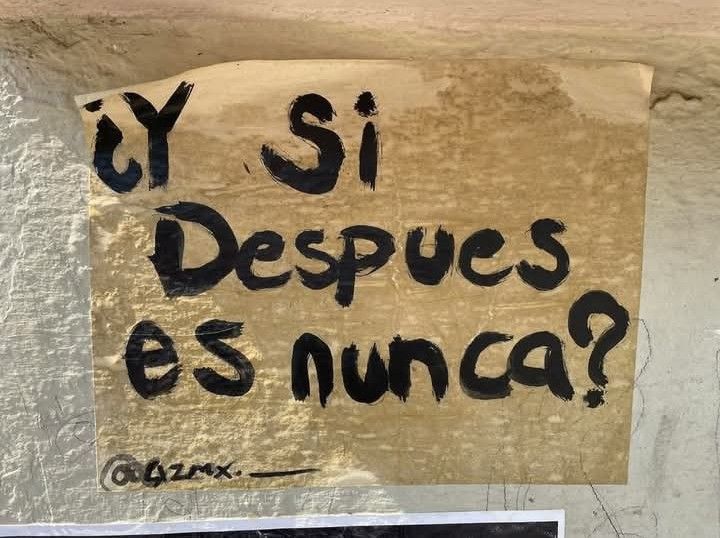 ¿Y Si
Despues
es nunca?